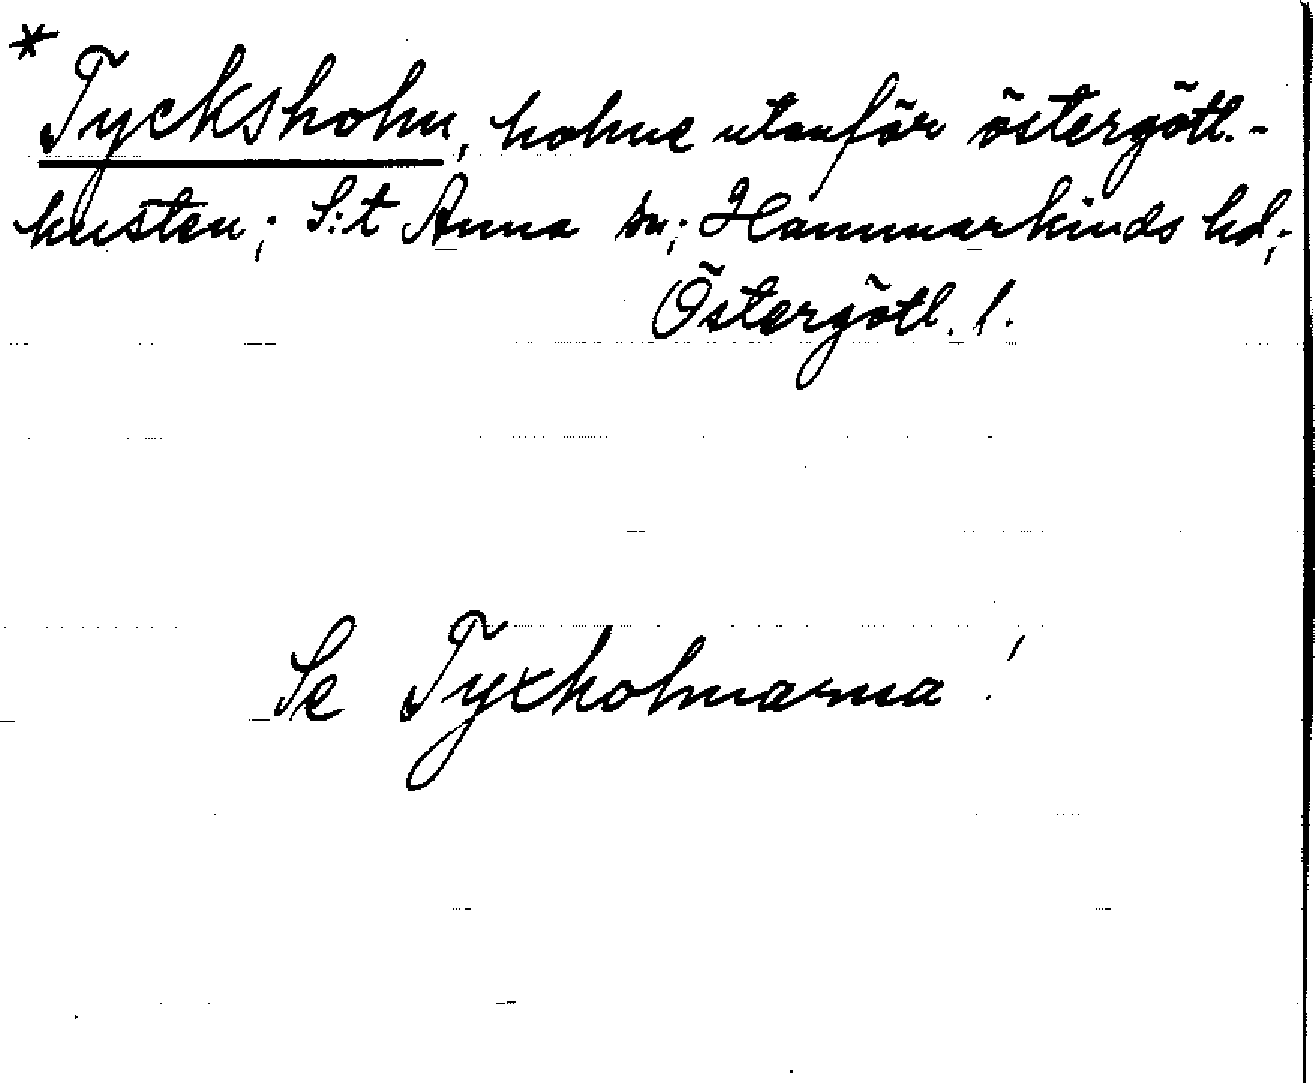 * Tycksholm, holme utanför östergötl.-
kusten; S:t Anna sn; Hammarkinds hd;
Östergötl. l.
Se Tyxholmarna!